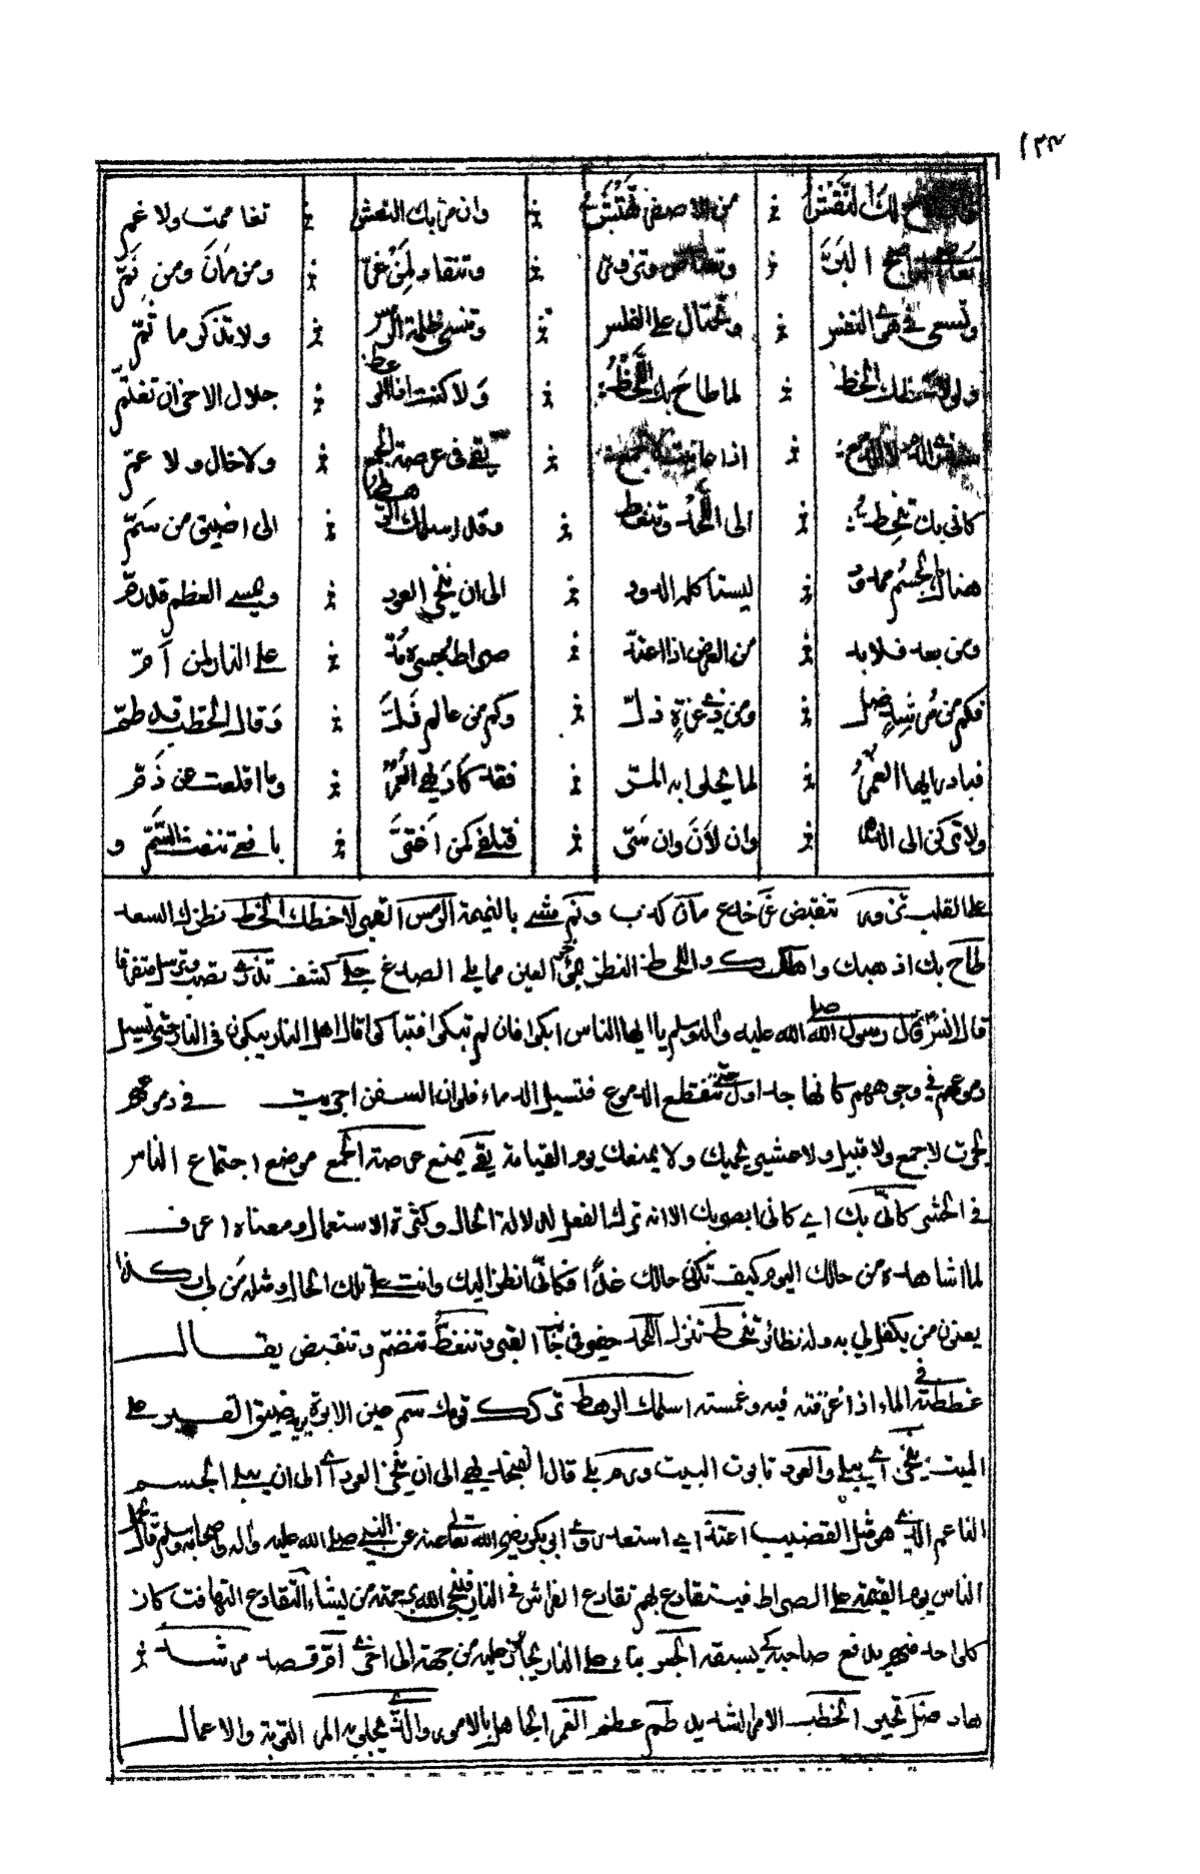 ١٣٢
لك النقش من الاصفر تهتش وان مر بك النعش تغاممت ولا غم
البر وتعتاص وتزور وتنقاد لمن غر ومن مان ومن نم
وتسعى في هوى النفس وتحتال على الفلس وتنسى ظلمة الرمس ولا تذكر ما ثم
ولو لاحظك الحظ لما طاح بك اللحظ ولا كنت اذا الوعظ جلا الاحزان تغتم
الدمع اذا عاينت لا جمع يقي في عرصة الجمع ولا خال ولا عم
كاني بك تنحط الى اللحد وتنغط وقد اسلمك الرهط الى اضيق من سم
هناك الجسم ممدود ليستاكله الدود الى ان ينخر العود ويمسي العظم قد رم
ومن بعد فلا بد من العرض اذا اعتد صراط جسره مد على النار لمن ام
فكم من مرشد ضل ومن ذي عزة ذل وكم من عالم زل وقال الخطب قد طم
فبادر ايها الغمر لما يحلو به المر فقد كاد يهي العمر وما اقلعت عن ذم
ولا تركن الى الدهر وان لان وان سر فتلفى كمن اغتر بافعى تنفث السم و
على القلب تزور تنقبض غر خدع مان كذب ونم مشى بالنميمة الرمس القبر لاحظك الحظ نظرك السعد
طاح بك اذهبك واهلكك واللحظ النظر بمؤخر العين مما يلي الصدغ جلى كشف تذري تصب وترسل متفرقا
قال انس قال رسول الله صلى الله عليه واله وسلم يا ايها الناس ابكوا فان لم تبكوا فتباكوا قال اهل النار يبكون في النار حتى تسيل
دموعهم في وجوههم كانها جداول حتى تنقطع الدموع فتسيل الدماء فلو ان السفن اجريت في دموعهم
لجرت لا جمع ولا قبيل ولا عشير يحميك ولا يمنعك يوم القيامة يقي يمنع عرصة الجمع موضع اجتماع الناس
في الحشر كاني بك اي كاني ابصر بك الا انه ترك الفعل لدلالة الحال وكثرة الاستعمال ومعناه اعرف
لما اشاهده من حالك اليوم كيف تكون حالك غدا فكاني انظر اليك وانت على تلك الحال ومثله من لي بكذا
يعنون من يكفل لي به وله نظائر تنحط تنزل اللحد حفير في جانب القبر وتنغط تنضم وتنقبض يقال
غططته في الماء اذا غرقته فيه وغمسته اسلمك الرهط تركك قومك سم عين الابرة يريد ضيق القبر على
الميت ينخر اي يبلى والعود تابوت البيت ورم بلي قال الى ان ينخر العود اي الى ان يبلى الجسم
الناعم الذي هو مثل القضيب اعتد اي استعد روى ابي بكر رضي الله تعالى عنه عن النبي صلى الله عليه واله واصحابه وسلم قال يحمل
الناس يوم القيمة على الصراط فيتقادع بهم تقادع الفراش في النار فينجي الله برحمته من يشاء التقادع التهافت كان
كل احد منهم يدافع صاحبه كي يسبقه الجسر بناء على النار يجاز عليه من جهة الى اخرى ام قصد مرشد
هاد ضل تحير الخطب الامر الشديد طم عظم الغمر الجاهل بالامور والذي يحلو به المر التوبة والاعمال